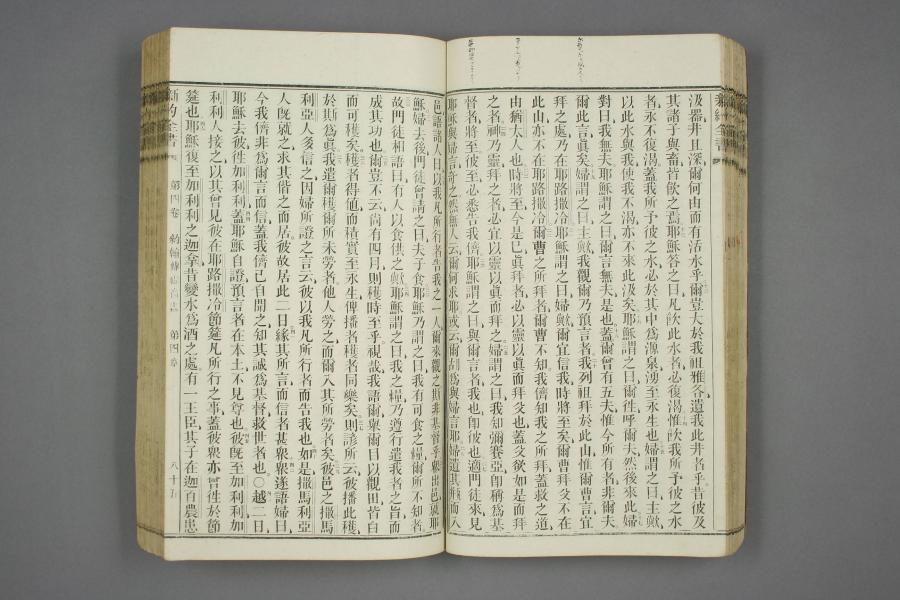 汲器井且深爾何由而有活水乎爾豈大於我祖雅各遺我此井者乎昔彼及
其諸子與畜皆飲之焉耶穌答之曰凡飲此水者必復渴惟飲我所予彼之水
者永不復渴蓋我所予彼之水必於其中爲源泉湧至永生也婦謂之曰主歟
以此水與我使我不渴亦不來此汲矣耶穌謂之曰爾往呼爾夫然後來此婦
對曰我無夫耶穌謂之曰爾言無夫是也蓋爾曾有五夫惟今所有者非爾夫
爾此言眞矣婦謂之曰主歟我觀爾乃預言者我列祖拜於此山惟爾曹言宜
拜之處乃在耶路撒冷耶穌謂之曰婦歟爾宜信我時將至矣爾曹拜父不在
此山亦不在耶路撒冷爾曹之所拜者爾曹不知我儕知我之所拜蓋救之道
由猶太人也時將至今是已眞拜者必以靈以眞而拜父也蓋父欲如是而拜
之者神乃靈拜之者必宜以靈以眞而拜之婦謂之曰我知彌賽亞卽稱爲基
督者將至至彼必悉告我儕耶穌謂之曰與爾言者我也卽彼也適門徒來見
耶穌與婦言奇之然無人云爾何求耶或云爾胡爲與婦言耶婦遺其缾而入
邑語諸人曰以我凡所行者告我之一人爾來觀之斯非基督乎衆出邑就耶
穌婦去後門徒曾請之曰夫子食耶穌乃謂之曰我有可食之糧爾所不知者
故門徒相語曰有人以食供之歟耶穌謂之曰我之糧乃遵行遣我者之旨而
成其功也爾豈不云尚有四月則穫時至乎視哉我語爾舉爾目以觀田皆白
而可穫矣穫者得値而積實至永生俾播者穫者同樂矣則諺所云彼播此穫
於斯爲眞我遣爾穫爾所未勞者他人勞之而爾入其所勞者矣彼邑之撒馬
利亞人多信之因婦所證之言云彼以我凡所行者而告我也如是撒馬利亞
人旣就之求其偕之而居彼故居此二日緣其所言而信者甚衆衆遂語婦曰
今我儕非爲爾言而信蓋我儕已自聞之知其誠爲基督救世者也○越二日
耶穌去彼往加利利蓋耶穌自證預言者在本土不見尊也彼旣至加利利加
利利人接之以其曾見彼在耶路撒冷節筵凡所行之事蓋彼衆亦曾往於節
筵也耶穌復至加利利之迦拿昔變水爲酒之處有一王臣其子在迦百農患
新約全書 第四卷 約翰傳福音書 第四章 八十五